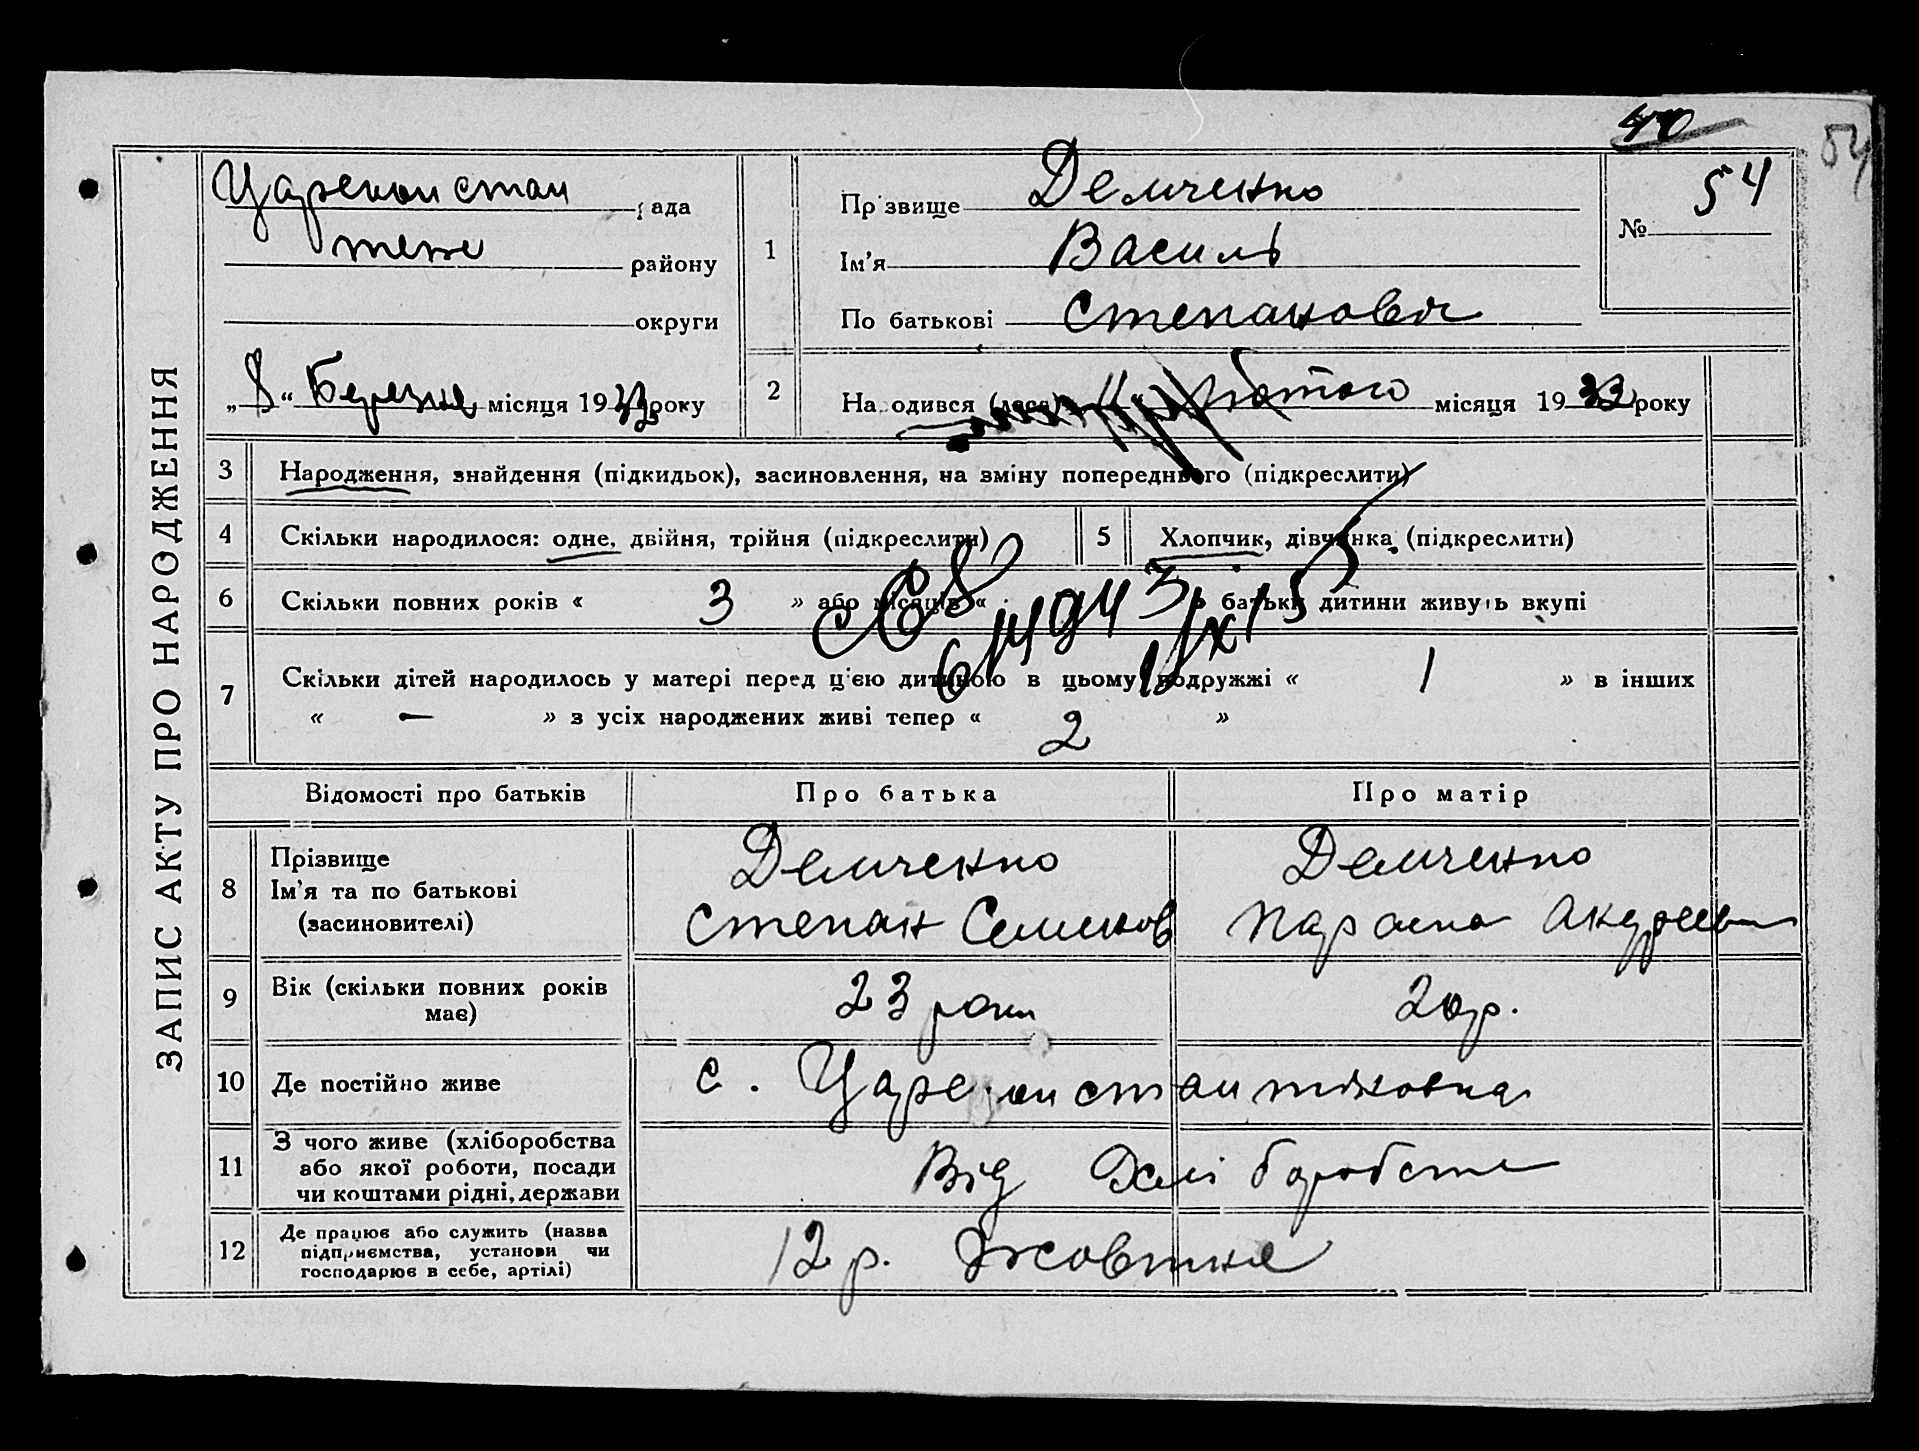 40
54
ЗАПИС АКТУ ПРО НАРОДЖЕННЯ
рада
теже району
округи
„8“ Березня місяця 1933 року
1
Прізвище Демченко
Ім'я Василь
По батькові Степанович
№ 54
2
Народився лютого місяця 1933 року
3 Народження, знайдення (підкидьок), засиновлення, на зміну попереднього (підкреслити)
4 Скільки народилося: одне, двійня, трійня (підкреслити)
5 Хлопчик, дівчинка (підкреслити)
6 Скільки повних років « 3 » або місяців « » батьки дитини живуть вкупі
7 Скільки дітей народилось у матері перед цією дитиною в цьому подружжі « 1 » в інших
« — » з усіх народжених живі тепер « 2 »
Відомості про батьків Про батька Про матір
8 Прізвище Ім'я та по батькові (засновителі)
Демченко Демченко
Степан Семенов Параска Андреевн
9 Вік (скільки повних років має) 23 роки 20 р.
10 Де постійно живе с.
11 З чого живе (хліборобства або якої роботи, посади чи коштами рідні, держави Від Хліборобства
12 Де працює або служить (назва підприємства, установи чи господарює в себе, артілі) 12 р. Жовтня